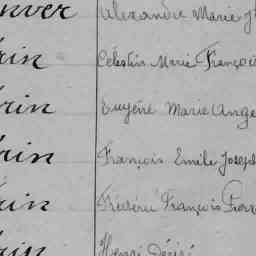 nver Alexandre Marie J
rin Celestin Marie François
rin Eugène Marie Ange
rin François Emile Joseph
rin Frédéric François Pierr
rin Henri Désiré